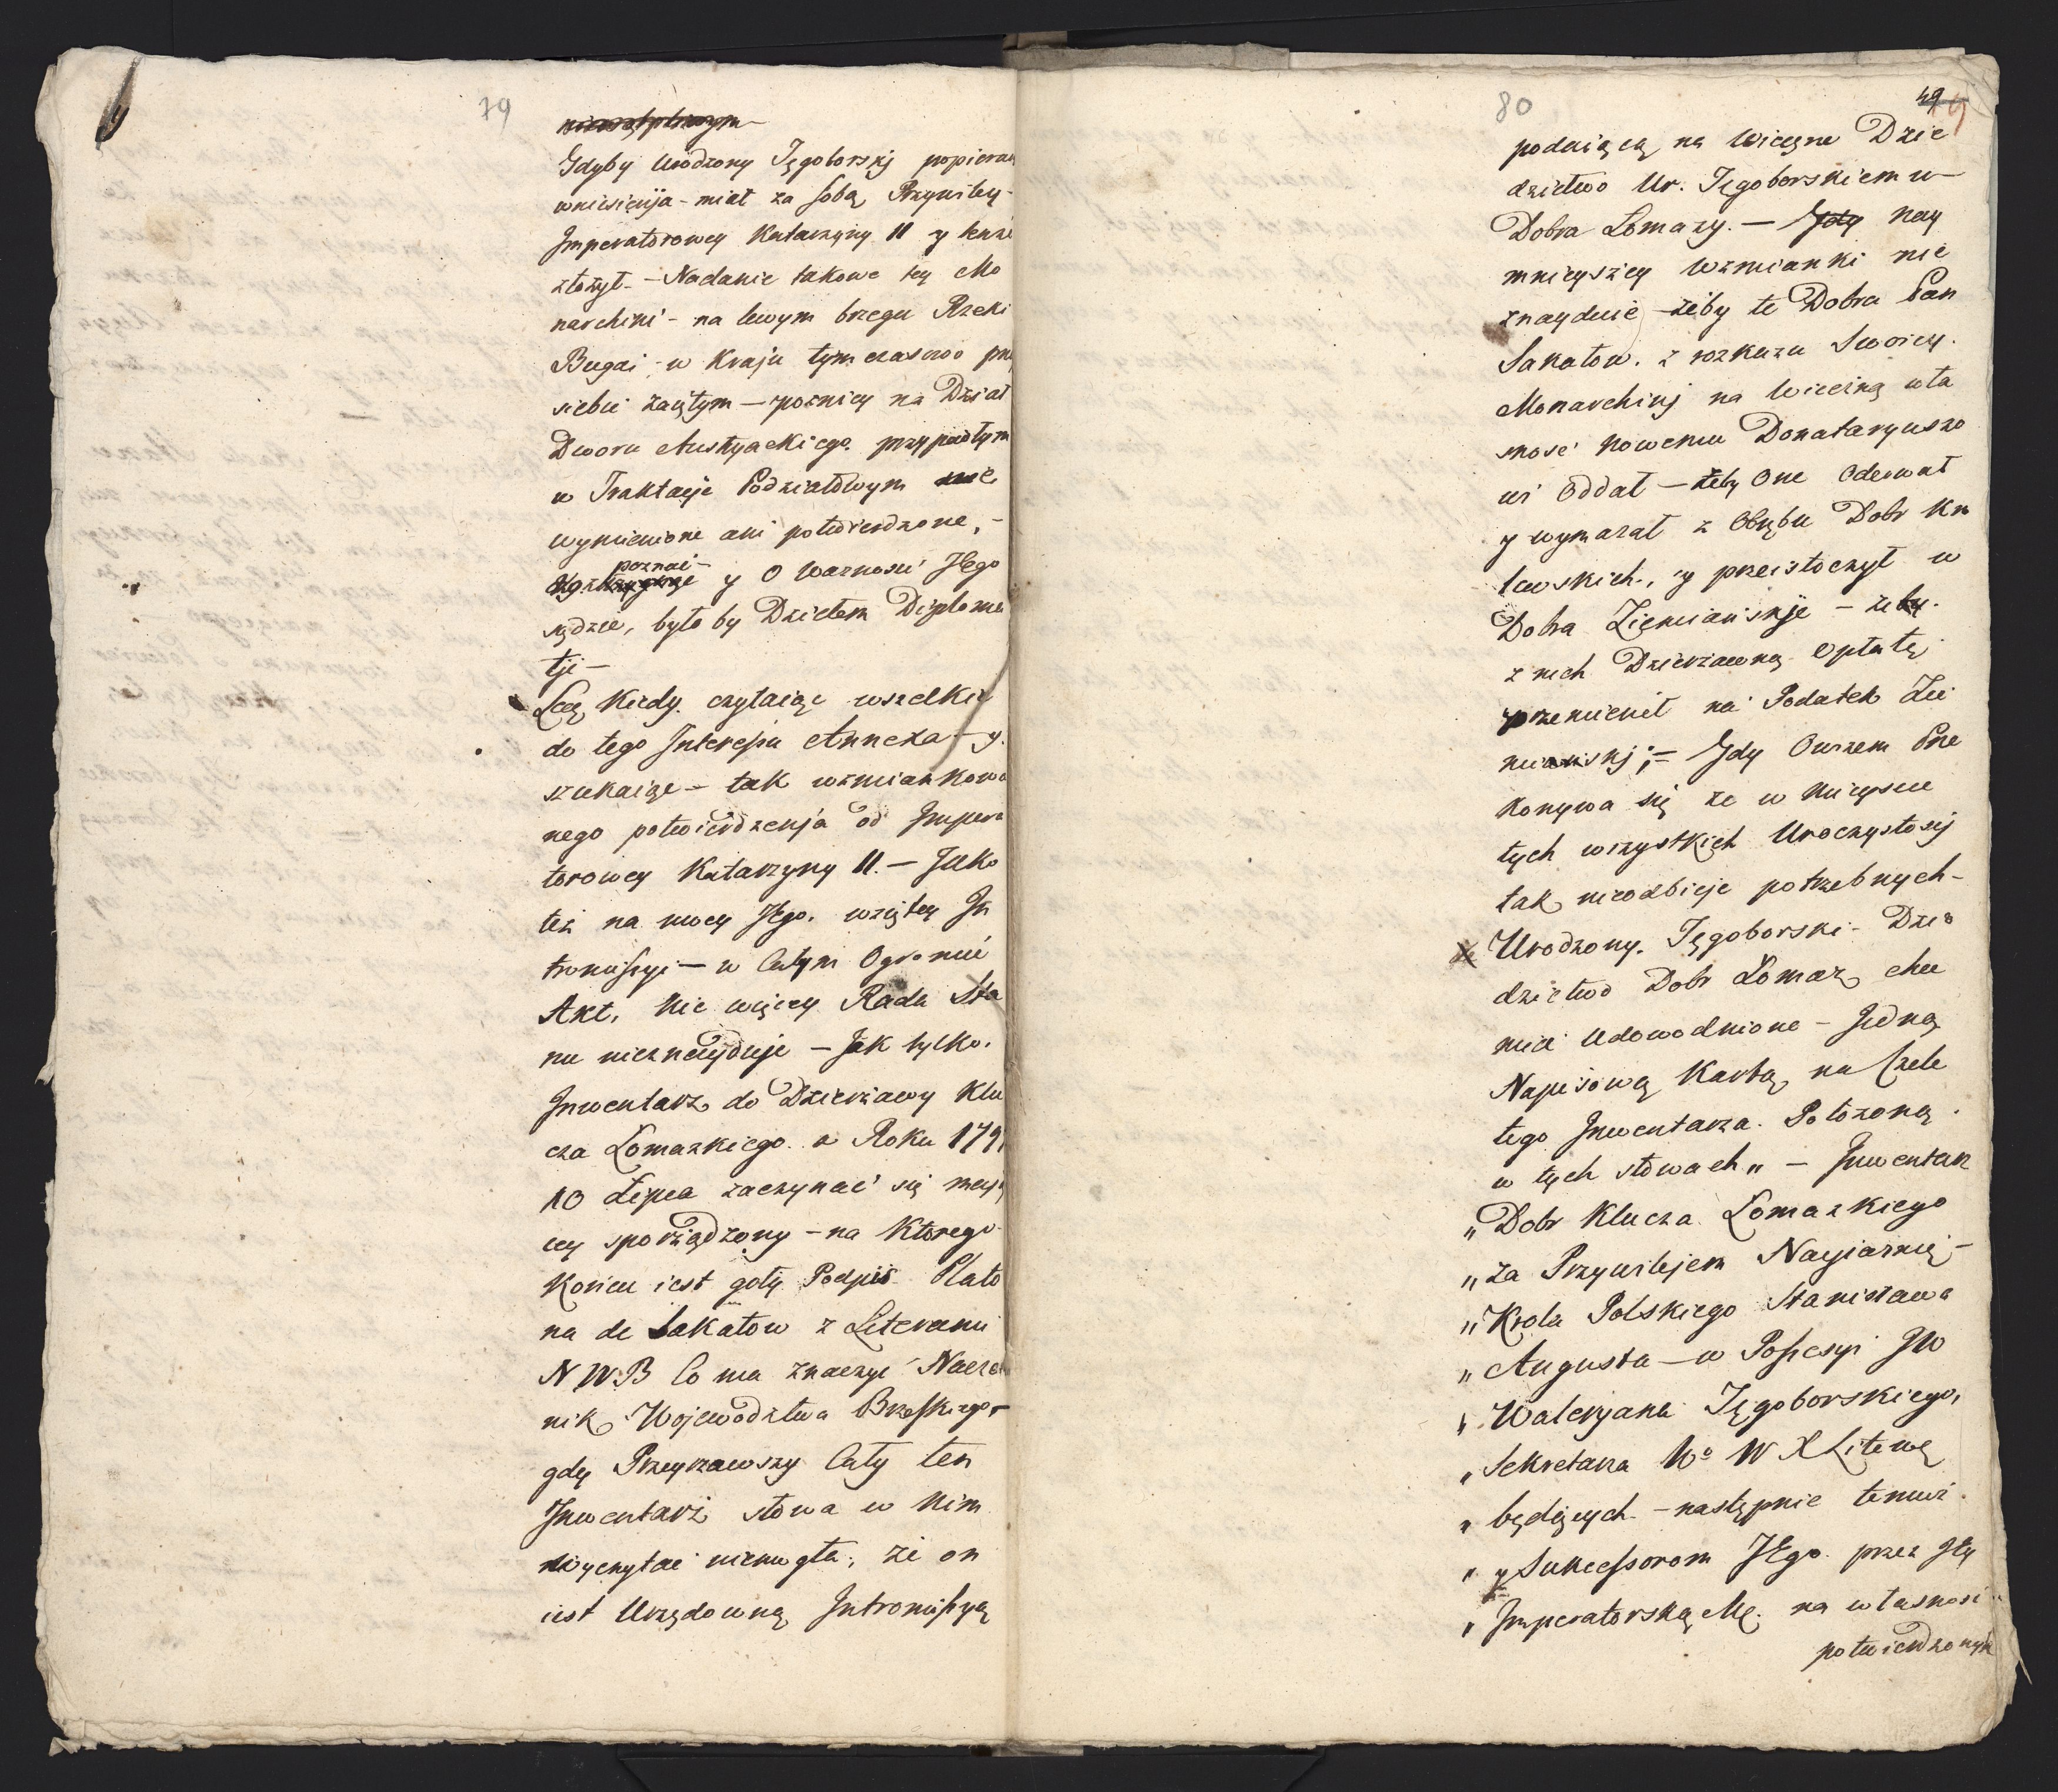 79
Gdyby Urodzony Tęgoborskj popierai
wniesieija - miał za sobą Przywiley -
Jmperatorowey Katarzyny II y tenże
złożył. - Nadanie takowe tey Mo
narchini - na lewym brzegu Rzeki
Bugai - w Kraju tymczasowo prz
siebie zaiętym - pozniey na Dział
Dworu Austryackiego przypadłym
w Traktacje Podziałowym nie
wymienione ani potwierdzone, -
poznai -
y o Wazności JEgo
sądzic, było by Dziełem Diploma
tji -
Lecz Kiedy czytaiąc wszelkie
do tego Jnteressu Annexa - y
szukaiąc - tak wzmiankowa
nego potwierdzenja od Jmpera
torowey Katarzyny II. - Jako
też na mocy JEgo. wziętey Jn
tromissyi - w Całym Ogromie
Akt, nic więcey Rada Sta
nu nieznayduje - Jak tylko.
Jnwentarz do Dzierżawy Klu
cza Łomazkiego a Roku 179
10 Lipca zaczynać się mają
cey sporządzony - na Którego
Końcu iest goły Podpis Plato
na de Sakatow z Literami
N W B Co ma znaczyć Naczel
nik Wojewodztwa Brzeskiego -
gdy Przeyrzawszy Cały ten
Jnwentarz słowa w Nim
wyczytać niemogła, że on
iest Urzędowną Jntromissyą
80
49
podaiącą na Wieczne Dzie
dzictwo Ur. Tęgoborskiemu
Dobra Łomazy. - Gdy Nay
mnieyszey Wzmianki nie
znayduie - żeby te Dobra Pan
Sakatow. z rozkazu Swoiey.
Monarchinj na Wieczną wła
snosć Nowemu Donataryuszo
wi Oddał - żeby One Oderwał
y wymazał z Obrębu Dobr Kró
lewskich, y przeistoczył w
Dobra Ziemianskje - żeby.
z nich Dzierzawną Opłatę
przemienił na Podatek Zie
mianskj; - Gdy Owszem Prze
konywa się że w Mieysce
tych wszystkich Uroczystosij
tak nieodbicje potrzebnych -
Urodzony. Tęgoborski - Dzie
dzictwo Dobr Łomaz chce
mieć Udowodnione - Jedną
Napisową Kartą na Czele
tego Jnwentarza. Położoną.
w tych słowach „ - Jnwentarz
„ Dobr Klucza Łomazkiego
„ za Przywilejem Nayiasniey -
„ Krola Polskiego Stanisława
„ Augusta - w Possesyi JW
„ Waleryana Tęgoborskiego,
„ Sekretarza Wo W X Litewg
„ będących - następnie temuż
„ y Sukcessorom JEgo przez Jey
„ Jmperatorską Mę. na własność
potwierdzonych